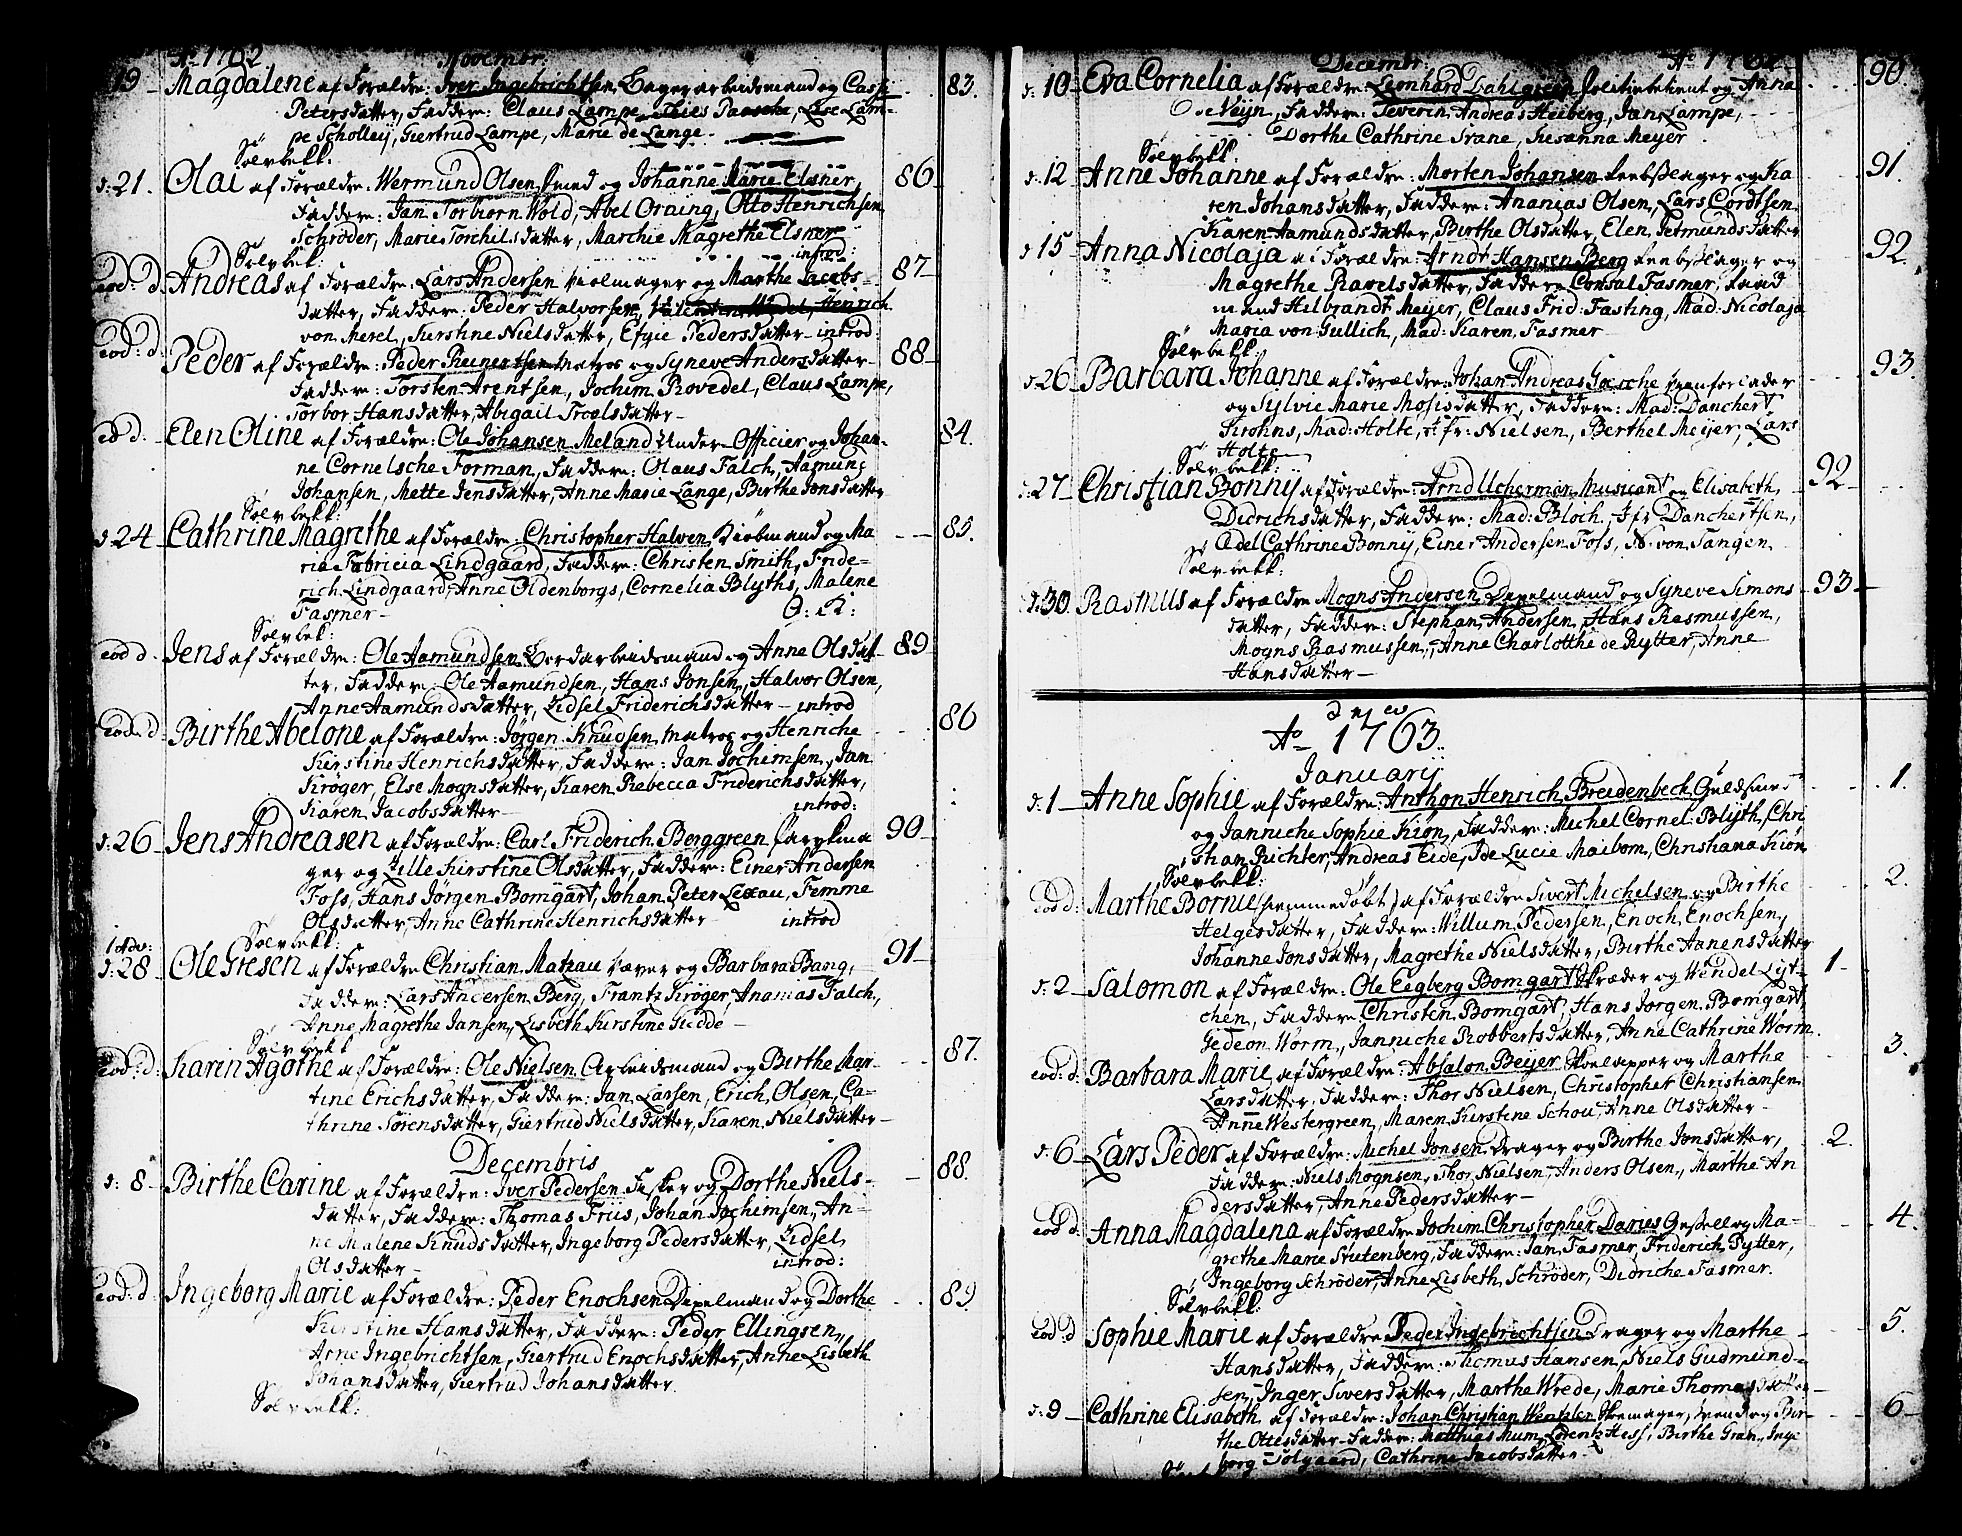 Ao 1762. Novembr.
19 Magdalene af Forældre: Iver Ingebrichtsen arbeidsmand og
Petersdatter, Faddere: Claus Lampe, Thies Paasche, Else Lam-
pe Scholley, Giertrud Lampe, Marie de Lange. 83.
Sølvbekk:
d: 21. Olai af Forældre: Wermund Olsen Smed og Johanne Marie Elsner, 86
Faddere: Jan Torbiorn Wold, Abel Oraing, Otto Henrichsen
Schrøder, Marie Torchilsdatter, Marchie Magrethe Elsner
Sølvbek: introd:
eod: d. Andreas af Forældre: Lars Andersen og Marthe Jacobs- 87
datter, Faddere: Peder Halvorsen, Henrich
von Merel, Kirstine Nielsdatter, Efgie Pedersdatter introd:
eod: d: Peder af Forældre: Peder Reinertsen Matros og Syneve Andersdatter 88
Faddere: Torsten Arentsen, Jochim Rovedel, Claus Lampe,
Torbor Hansdatter, Abigail Troelsdatter
eod d. Elen Oline af Forældre: Ole Johansen Meland Under-Officier og Johan- 84.
ne Cornelsche Forman, Faddere: Olaus Falch, Aasmund
Johansen, Mette Jensdatter, Anne Marie Lange, Birthe Jonsdatter
Sølvbekk:
d: 24 Cathrine Magrethe af Forældre: Christopher Halven Kiøbmand og Ma 85.
ria Fabricia Lindgaard, Faddere: Christen Smith, Fride-
rich Lindgaard, Anne Oldenborgs, Cornelia Blyths, Malene
Fasmer O: K:
Sølvbek:
eod d. Jens af Forældre: Ole Aamundsen arbeidsmand og Anne Olsdat 89
ter, Faddere: Ole Aamundsen, Hans Jonsen, Halvor Olsen,
Anne Aamundsdatter, Zidsel Friderichsdatter introd
eod: d: Birthe Abelone af Forældre: Jørgen Knudsen Matros og Henriche 86
Kirstine Henrichsdatter, Faddere: Jan Jochimsen, Jan
Krøger, Else Mognsdatter, Karen Rebecca Friderichsdatter,
Karen Jacobsdatter introd:
d: 26 Jens Andreasen af Forældre: Carl Friderich Berggreen 90
ger og Zille Kirstine Olsdatter, Faddere: Einer Andersen
Foss, Hans Jørgen Bomgart, Johan Peter Lexau, Femme
Olsdatter, Anne Cathrine Henrichsdatter introd
Sølvbekk:
1 Adv:
d: 28 Ole Giesen af Forældre Christian Matzau Væver og Barbara Bang, 91
Faddere: Lars Andersen Berg, Frantz Krøger, Ananias Falch,
Anne Magrethe Jansen, Lisbeth Kirstine Giedde
Sølvbekk
eod: d: Karen Agothe af Forældre: Ole Nielsen Arbeidsmand og Birthe Mar- 87.
tine Erichsdatter, Faddere: Jan Larsen, Erich Olsen, Ca-
thrine Sørensdatter, Giertrud Nielsdatter, Karen Nielsdatter
Decembris
d: 8 Birthe Carine af Forældre: Iver Pedersen Fisker og Dorthe Niels- 88.
datter, Faddere: Thomas Friis, Johan Jochimsen, An-
ne Malene Knudsdatter, Ingeborg Pedersdatter, Zidsel
Olsdatter introd:
eod: d Ingeborg Marie af Forældre: Peder Enochsen og Dorthe 89.
Kirstine Hansdatter, Faddere: Peder Ellingsen,
Arne Ingebrichtsen, Giertrud Enochsdatter, Anne Lisbeth
Johansdatter, Giertrud Johansdatter.
Sølvbekk:
Decembr. Ao 1762
d: 10 Eva Cornelia af Forældre: Leonhard Dahlgreen Politiebetient og Anna 90.
de Neijn, Faddere: Severin Andreas Heeberg, Jan Lampe,
Dorthe Cathrine Irane, Susanna Meyer
Sølvbekk:
d: 12 Anne Johanne af Forældre: Morten Johansen og Ka 91.
ren Johansdatter, Faddere: Ananias Olsen, Lars Cordtsen
Karen Aamundsdatter, Birthe Olsdatter, Elen Jetmundsdatter
d 15 Anna Nicolaja af Forældre: Arndt Hansen Berg og 92.
Magrethe Ravelsdatter, Faddere Consul Fasmer,
mand Hilbrandt Meyer, Claus Frid: Fasting, Mad: Nicolaja
Maria von Gullich, Mad: Karen Fasmer
Sølvbekk:
d: 26 Barbara Johanne af Forældre: Johan Andreas Giesche 93.
og Sylvie Marie Mosisdatter, Faddere: Mad: Danchert
Krohns, Mad: Holte, Jfr: Nielsen, Berthel Meyer, Lars
Holte
Sølvbekk:
d: 27 Christian Bonny af Forældre: Arnd Uchermer Musicant og Elisabeth 92
Didrichsdatter, Faddere: Mad: Bloch, Jfr Danchertsen,
Adel Cathrine Bonny, Einer Andersen Foss, N. von Tangen
Sølvbekk:
d: 30. Rasmus af Forældre Mogns Andersen og Syneve Simons 93
datter, Faddere: Stephan Andersen, Hans Rasmussen,
Mogns Rasmussen, Anne Charlotthe de Rytter, Anne
Hansdatter
Ao 1763.
January
d: 1 Anne Sophie af Forældre: Anthon Henrich Breidenbeck Guldsmed 1.
og Janniche Sophie Kiøn, Faddere: Michel Cornel: Blyth, Chri
sthan Richter, Andreas Eide, Ide Lucie Maibom, Christiana Kiøn
Sølvbekk:
eod d: Marthe Bornie hiemmedøbt) af Forældre Sivert Michelsen og Birthe 2.
Helgesdatter, Faddere: Willum Pedersen, Enoch Enochsen,
Johanne Jonsdatter, Magrethe Nielsdatter, Birthe Hansdatter
d: 2 Salomon af Forældre: Ole Eegberg Bomgart Skræder og Wendel Lyt- 1
chen, Faddere Christen Bomgart, Hans Jorgen Bomgart,
Gedeon Worm, Janniche Robbertsdatter, Anne Cathrine Worm
eod: d: Barbara Marie af Forældre: Absalon Beyer og Marthe 3.
Larsdatter, Faddere: Thor Nielsen, Christopher Christiansen
Anne Westergreen, Maren Kirstine Schou, Anne Olsdatter
d: 6 Lars Peder af Forældre: Michel Jonsen Drager og Birthe Jonsdatter, 2.
Faddere: Niels Mognsen, Thor Nielsen, Anders Olsen, Marthe An
dersdatter, Anne Pedersdatter
eod d. Anna Magdalena af Forældre Jochim Christopher Daries Gesell og Ma- 4.
grethe Marie Stutenberg, Faddere: Jan Fasmer, Friderich Rytter,
Ingeborg Schrøder, Anne Lisbeth Schrøder, Didriche Fasmer.
Sølvbekk:
eod: d Sophie Marie af Forældre: Peder Ingebrichtsen Drager og Marthe 5.
Hansdatter, Faddere: Thomas Hansen, Niels Gudmund-
sen, Inger Siversdatter, Marthe Wrede, Marie Thomasdatter
d: 9 Cathrine Elisabeth af Forældre: Johan Christian Wentzler Svend og Bir- 6
the Ottesdatter Faddere: Matthias Mum, Lorentz Hess, Birthe Gran, Inge
borg Tolgaard, Cathrine Jacobsdatter